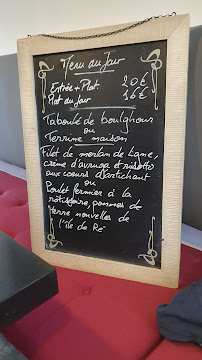 Menu du Jour
Entrée + Plat 20€
Plat du Jour 16€
Taboulé de boulghour
ou
Terrine maison
Filet de merlan de Ligne,
crème d'avruga et risotto
aux cœurs d'artichaut
ou
Poulet fermier à la
rôtissoire, pommes de
terre nouvelles de
l'île de Ré